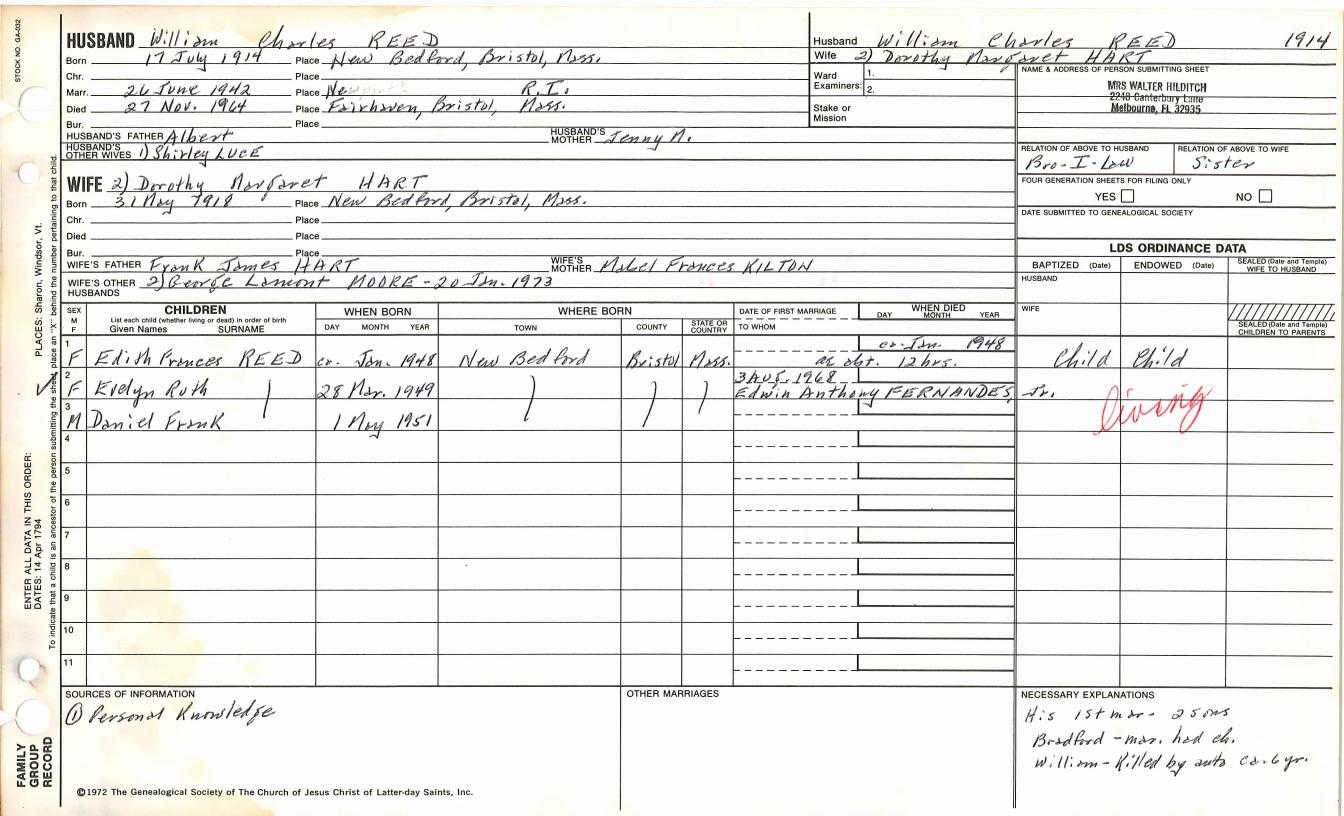 STOCK NO. GA-032
HUSBAND William Charles REED
Born 17 July 1914 Place New Bedford, Bristol, Mass.
Chr. Place
Marr. 26 June 1942 Place R.I.
Died 27 Nov. 1964 Place Fairhaven, Bristol, Mass.
Bur. Place
HUSBAND'S FATHER Albert HUSBAND'S MOTHER Jenny M.
HUSBAND'S OTHER WIVES 1) Shirley LUCE
WIFE 2) Dorothy Margaret HART
Born 31 May 1918 Place New Bedford, Bristol, Mass.
Chr. Place
Died Place
Bur. Place
WIFE'S FATHER Frank James HART WIFE'S MOTHER Mabel Frances KILTON
WIFE'S OTHER HUSBANDS 2) George Lamont MOORE - 20 Jan. 1973
Husband William Charles REED 1914
Wife 2) Dorothy Margaret HART
Ward Examiners: 1.
2.
Stake or Mission
NAME & ADDRESS OF PERSON SUBMITTING SHEET
MRS WALTER HILDITCH
2248 Canterbury Lane
Melbourne, FL 32935
RELATION OF ABOVE TO HUSBAND RELATION OF ABOVE TO WIFE
Bro-I-Law Sister
FOUR GENERATION SHEETS FOR FILING ONLY
YES NO
DATE SUBMITTED TO GENEALOGICAL SOCIETY
LDS ORDINANCE DATA
BAPTIZED (Date) ENDOWED (Date) SEALED (Date and Temple) WIFE TO HUSBAND
HUSBAND
WIFE
SEALED (Date and Temple) CHILDREN TO PARENTS
SEX M F CHILDREN WHEN BORN WHERE BORN DATE OF FIRST MARRIAGE WHEN DIED
List each child (whether living or dead) in order of birth
Given Names SURNAME DAY MONTH YEAR TOWN COUNTY STATE OR COUNTRY TO WHOM DAY MONTH YEAR
1 ca. Jan. 1948
F Edith Frances REED ca. Jan. 1948 New Bedford Bristol Mass. ae abt. 12 hrs. Child Child
2 3 Aug. 1968
F Evelyn Ruth 28 Mar. 1949 Edwin Anthony FERNANDES, Jr.
living
3
M Daniel Frank 1 May 1951
4
5
6
7
8
9
10
11
SOURCES OF INFORMATION
① Personal Knowledge
OTHER MARRIAGES
NECESSARY EXPLANATIONS
His 1st mar- 2 sons
Bradford - mar. had ch.
William - Killed by auto ca. 6 yr.
©1972 The Genealogical Society of The Church of Jesus Christ of Latter-day Saints, Inc.
ENTER ALL DATA IN THIS ORDER:
DATES: 14 Apr 1794
PLACES: Sharon, Windsor, Vt.
To indicate that a child is an ancestor of the person submitting the sheet, place an "X" behind the number pertaining to that child.
FAMILY
GROUP
RECORD